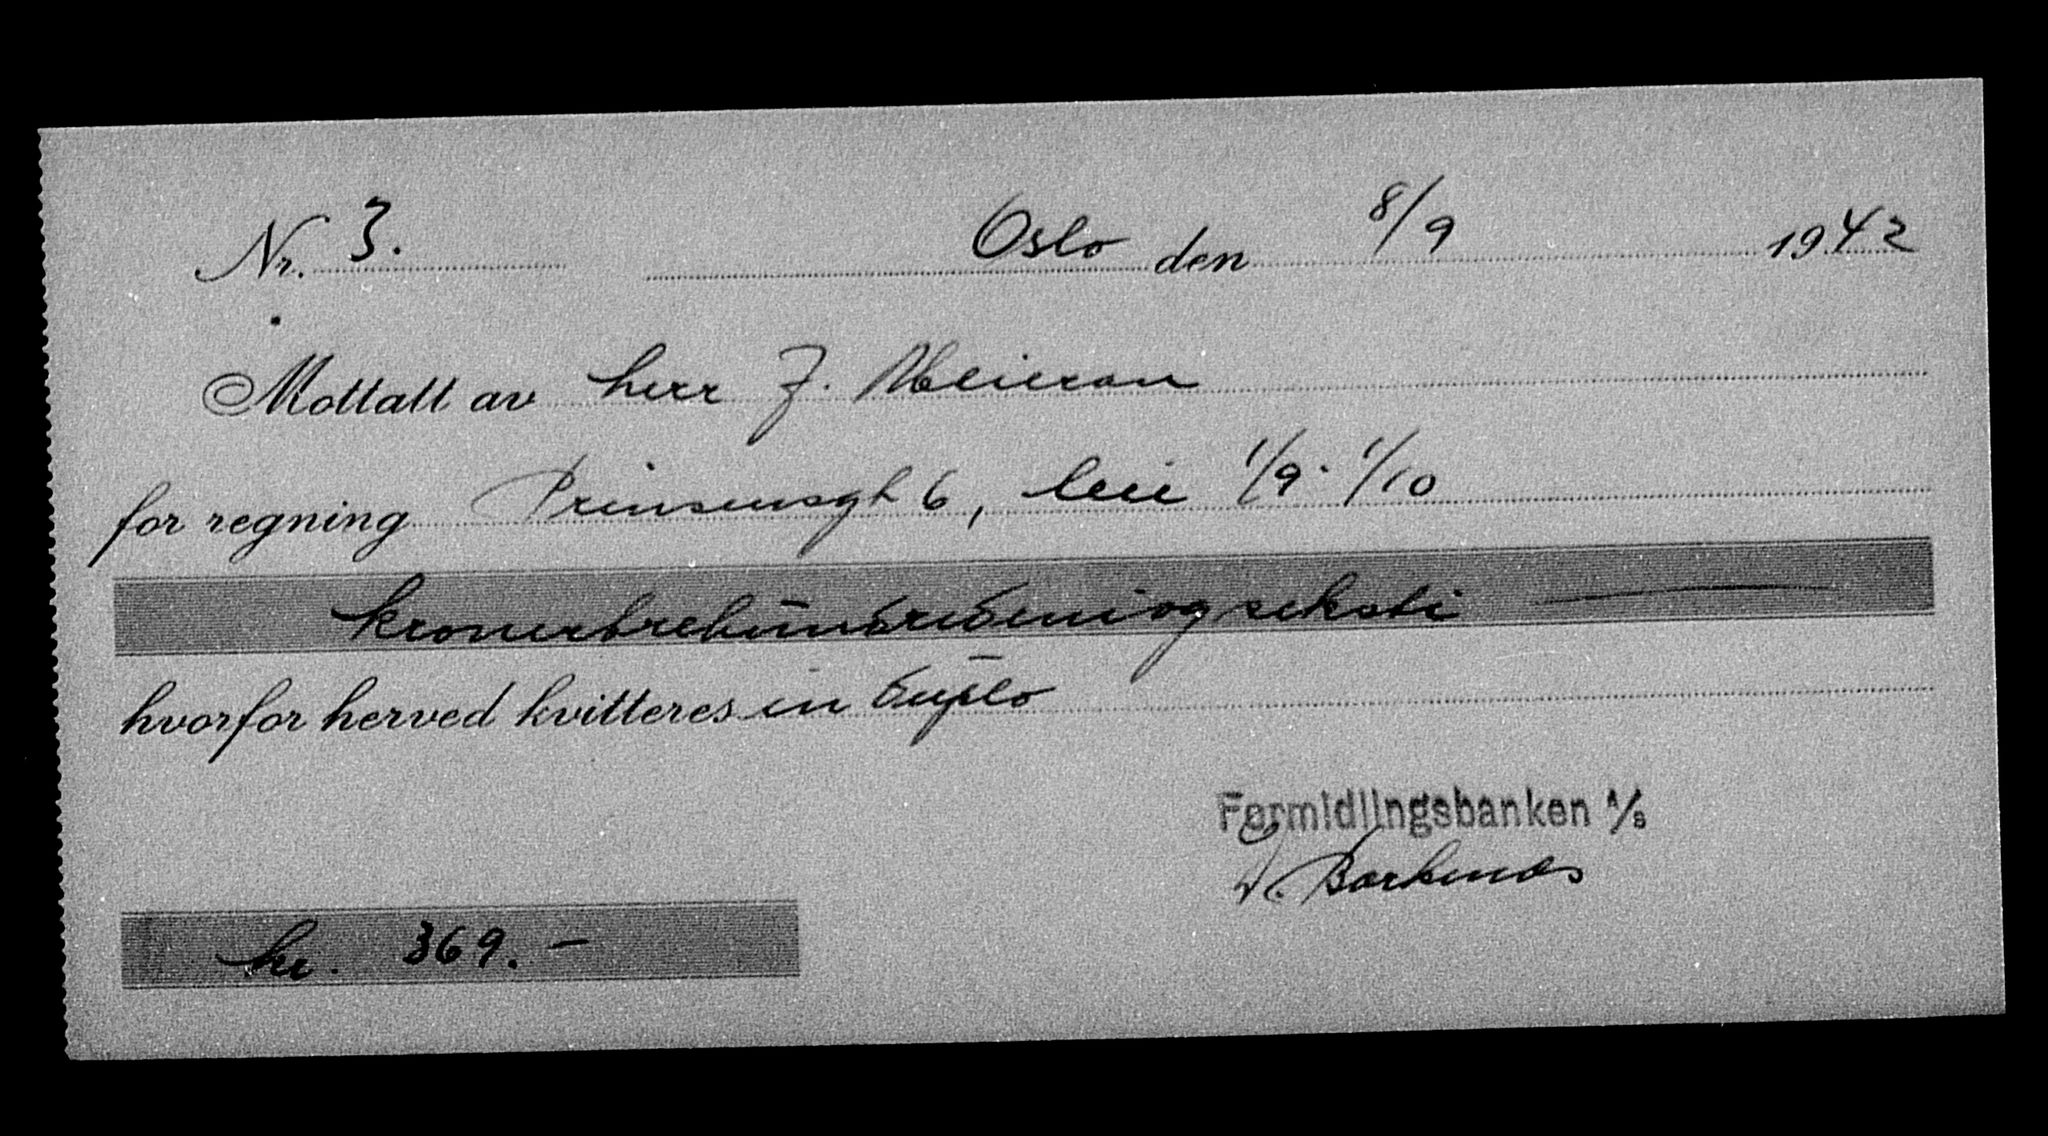 Nr. 3. Oslo den 8/9 1942
Mottatt av herr J. Meieran
for regning Prinsensgt 6, leie 1/9 - 1/10
kronertrehundredeniogseksti
hvorfor herved kvitteres in duplo
Formidlingsbanken A/S
kr. 369.-